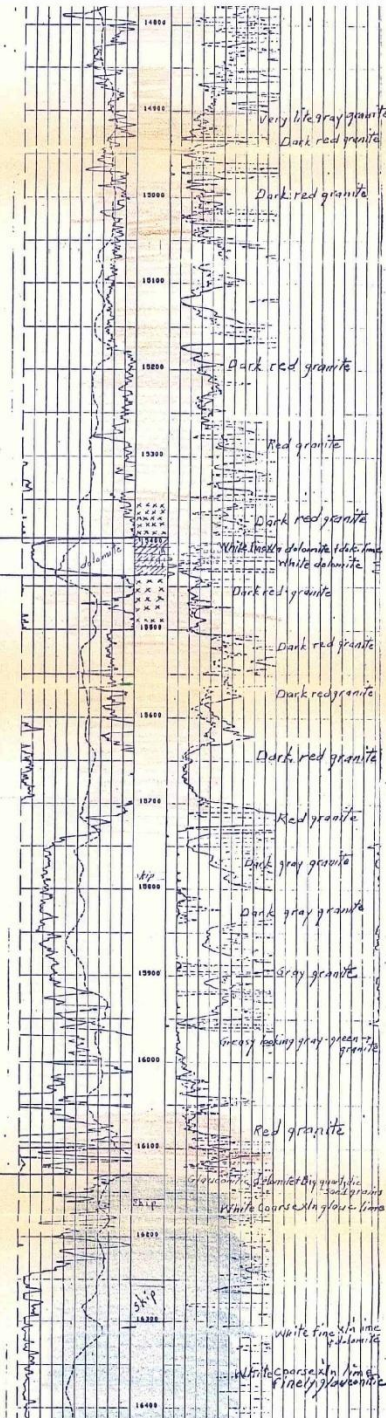 14800
14900
Very lite gray granite
Dark red granite
15000
Dark red granite
15100
15200
Dark red granite
15300
Red granite
Dark red granite
15400
dolomite
White dolomite
Dark red granite
15500
Dark red granite
Dark red granite
15600
Dark red granite
15700
Red granite
Dark gray granite
skip
15800
Dark gray granite
15900
Gray granite
Greasy looking gray-green
granite
16000
Red granite
16100
sand grains
skip
White Coarse xln glauc. lime
16200
skip
16300
White fine xln lime
& dolomite
White Coarse xln lime
finely glauconitic
16400